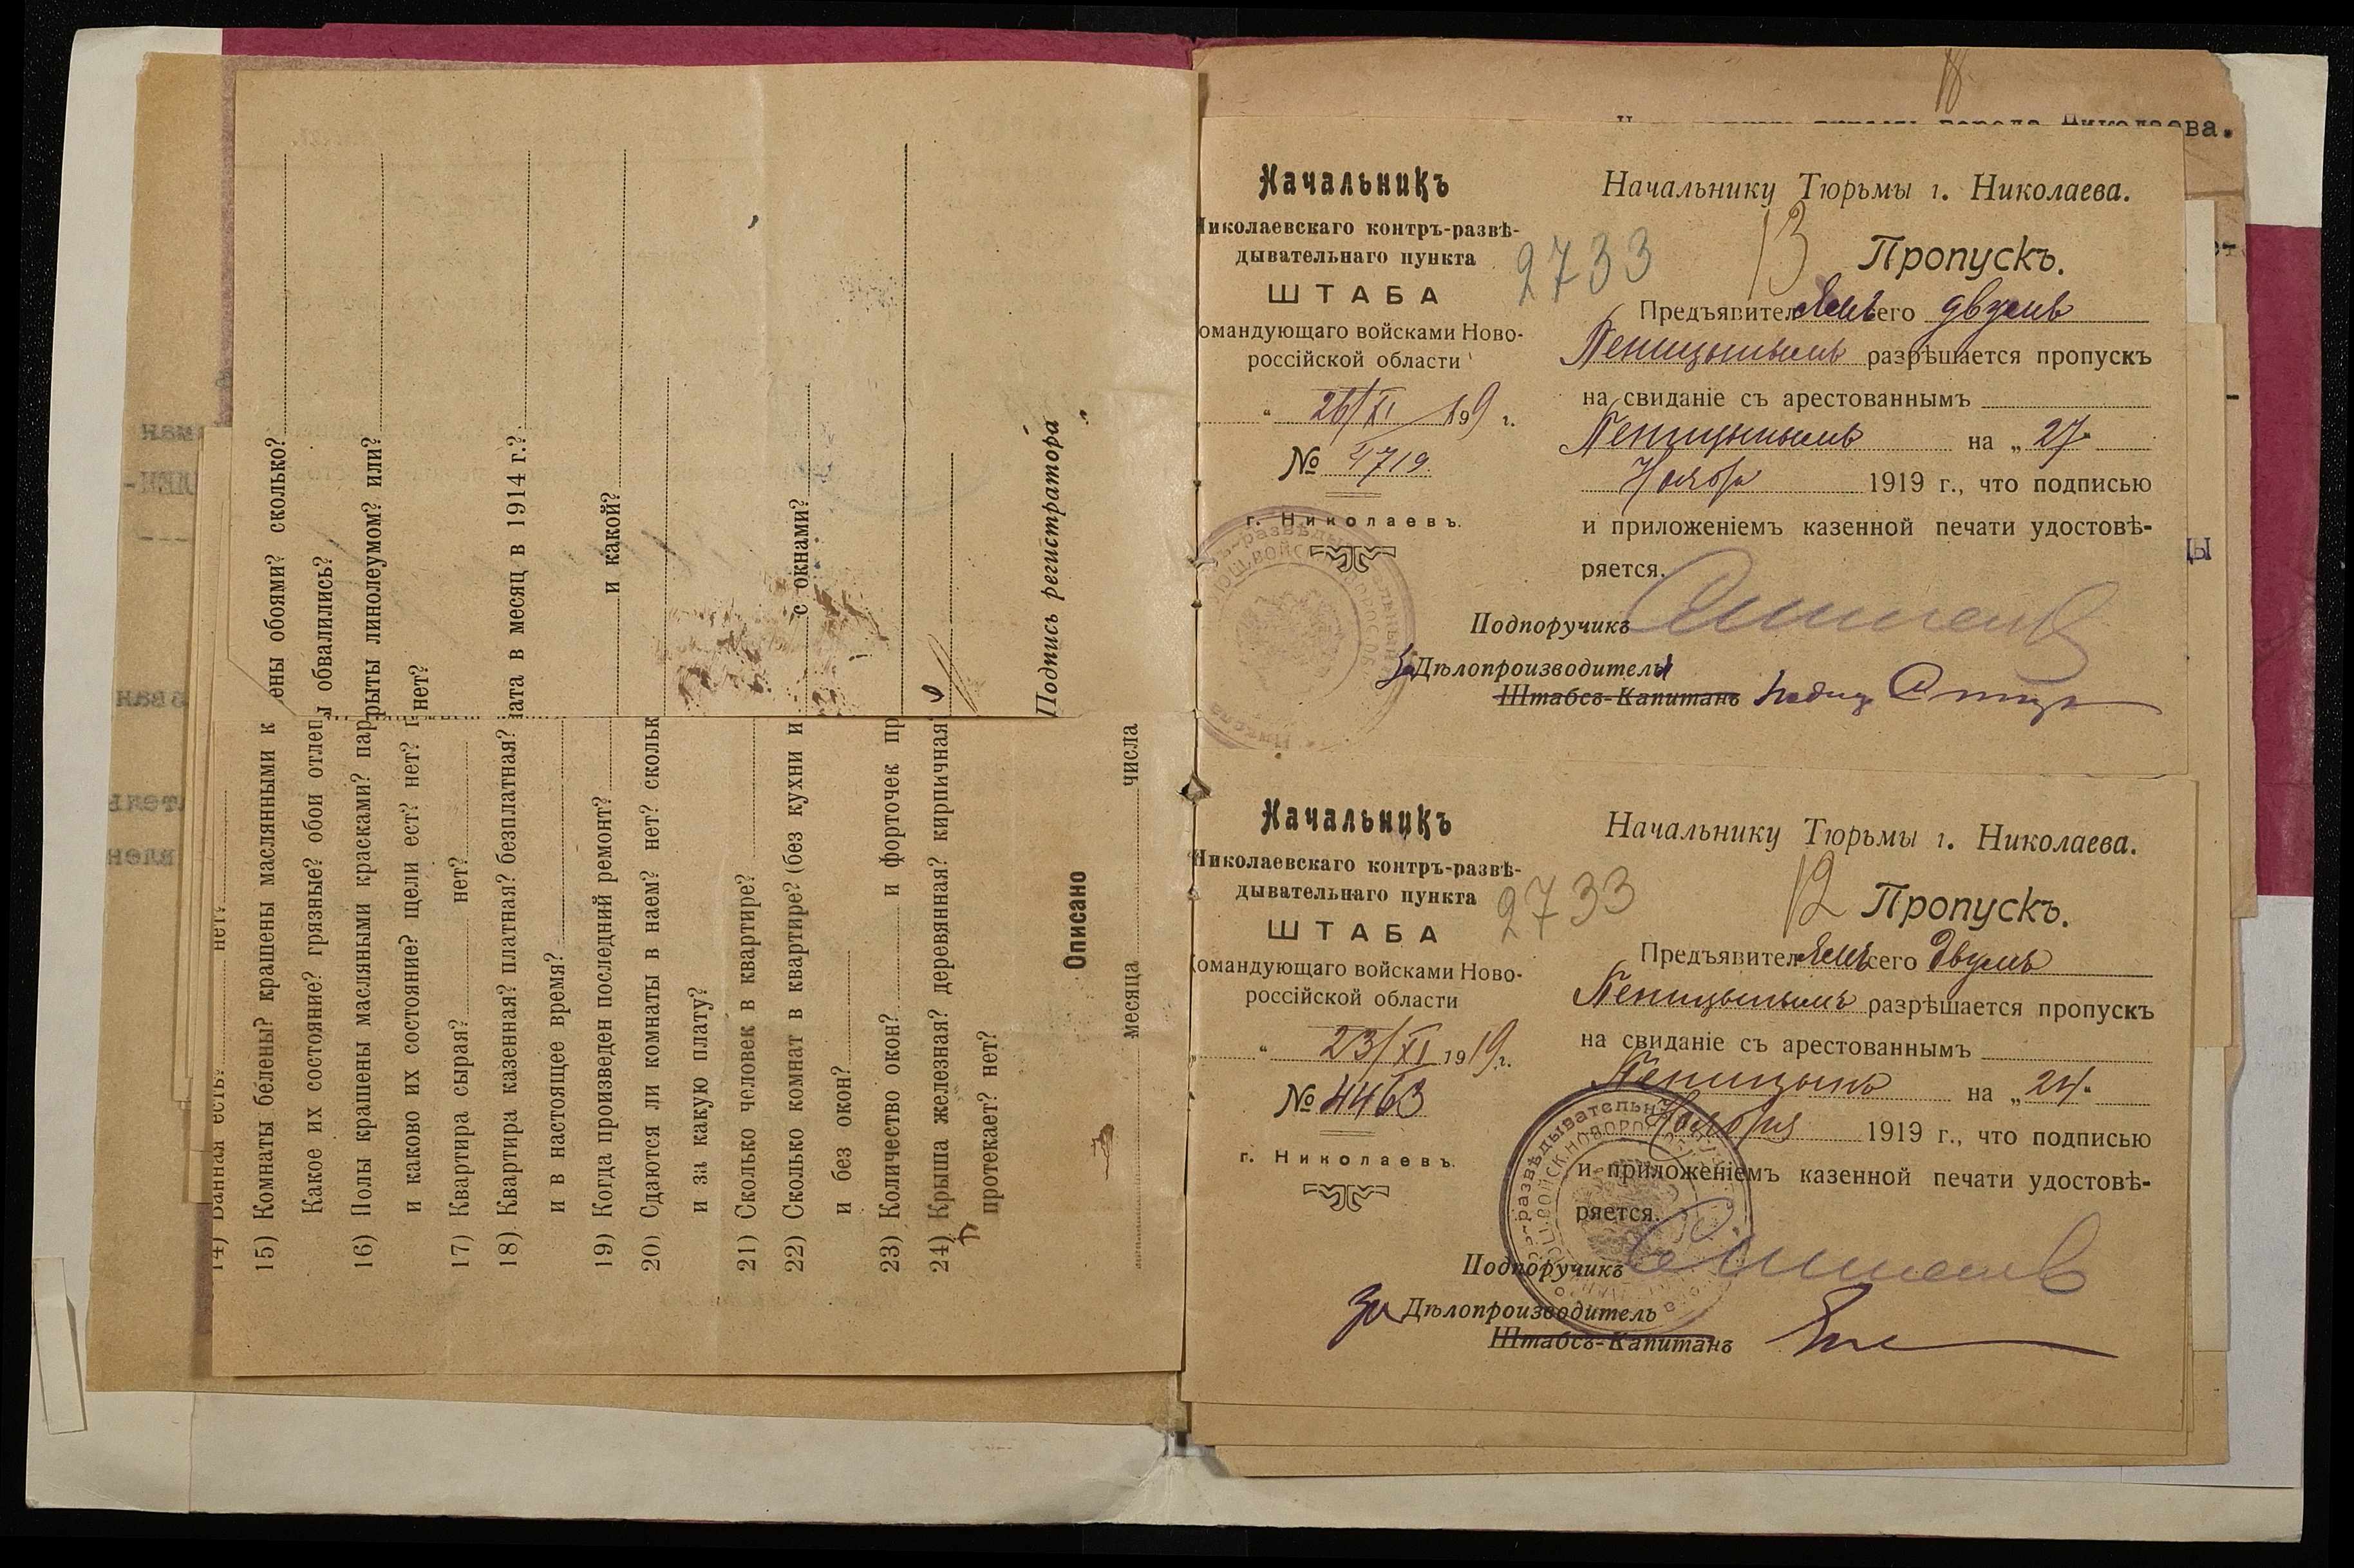 14) Ванная есть? нет?
15) Комнаты белены? крашены маслянными к ены обоями? сколько?
Какое их состояние? грязные? обои отлеп ы обвалились?
16) Полы крашены масляными красками? пар рыты линолеумом? или?
и каково их состояние? щели ест? нет? п нет?
17) Квартира сырая? нет?
18) Квартира казенная? платная? безплатная? лата в месяц в 1914 г.?
и в настоящее время?
19) Когда произведен последний ремонт? и какой?
20) Сдаются ли комнаты в наем? нет? скольк
и за какую плату?
21) Сколько человек в квартире?
22) Сколько комнат в квартире? (без кухни и с окнами?
и без окон?
23) Количество окон? и форточек пр
24) Крыша железная? деревянная? кирпичная
протекает? нет?
Описано
Подпись регистратора
месяца числа
города Николаева.
Начальникъ
Николаевскаго контръ-развѣ-
дывательнаго пункта
ШТАБА
омандующаго войсками Ново-
россійской области
" 26/XI 1919 г.
№ 4719
г. Николаевъ.
2733
13
Начальнику Тюрьмы г. Николаева.
Пропускъ.
Предъявителямъ сего двумъ
Пеницынымъ разрѣшается пропускъ
на свиданіе съ арестованнымъ
Пеницынымъ на „27"
Ноября 1919 г., что подписью
и приложеніемъ казенной печати удостовѣ-
ряется.
Подпоручикъ
За Дѣлопроизводителя
Штабсъ-Капитанъ
Начальникъ
Николаевскаго контръ-развѣ-
дывательнаго пункта
ШТАБА
омандующаго войсками Ново-
россійской области
" 23/XI 1919 г.
№ 4463
г. Николаевъ.
2733
12
Начальнику Тюрьмы г. Николаева.
Пропускъ.
Предъявителямъ сего двумъ
Пеницынымъ разрѣшается пропускъ
на свиданіе съ арестованнымъ
Пеницынъ на „24"
Ноября 1919 г., что подписью
и приложеніемъ казенной печати удостовѣ-
ряется.
Подпоручикъ
За Дѣлопроизводитель
Штабсъ-Капитанъ